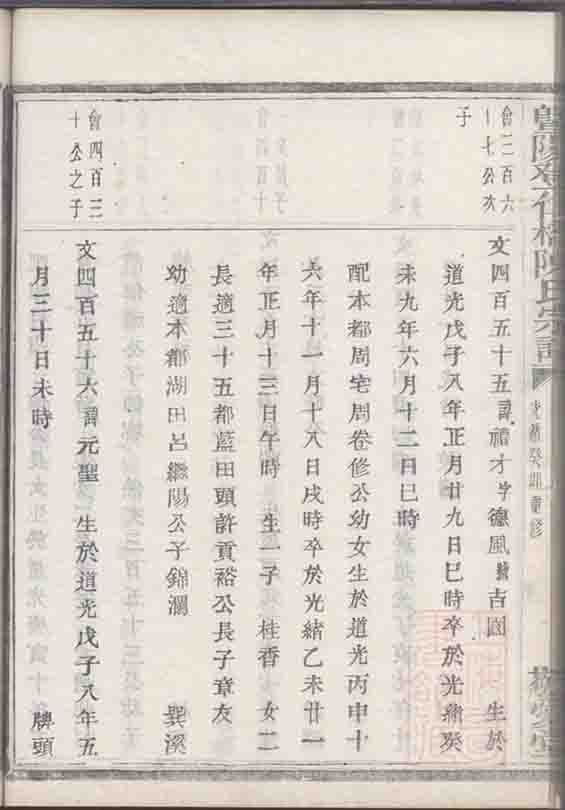 暨陽 橋陳氏宗譜
光緒癸卯重修
會三百六
十七公次
子
文四百五十五諱禮才字德風號吉園 生於
道光戊子八年正月廿九日巳時卒於光緒癸
未九年六月十二日巳時
配本都周宅周卷修公幼女生於道光丙申十
六年十一月十八日戌時卒於光緒乙未廿一
年正月十三日午時 生一子桂香 女二
長適三十五都藍田頭許貢裕公長子章友
幼適本都湖田呂繼陽公子錦瀾 巽溪
會四百三
十公之子
文四百五十六諱元聖 生於道光戊子八年五
月三十日未時 牌頭